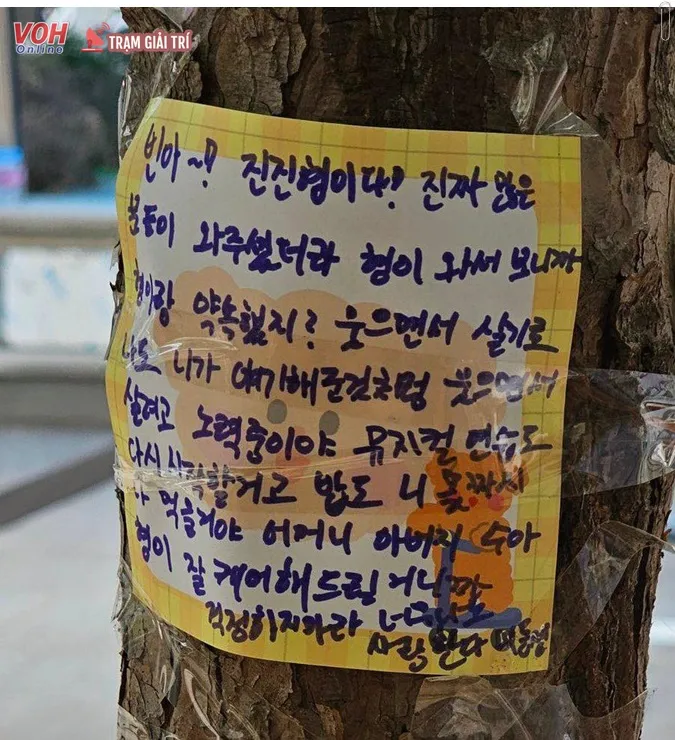 VOH
Online
TRẠM GIẢI TRÍ
빈아~! 진진형이다? 진짜 많은
분들이 와주셨더라 형이 와서 보니까
형이랑 약속했지? 웃으면서 살기로
나도 니가 얘기해준것처럼 웃으면서
살려고 노력중이야 뮤지컬 연습도
다시 시작할거고 밥도 니 몫까지
다 먹을거야 어머니 아버지 수아
형이 잘 케어해드릴거니까
걱정하지마라
사랑한다